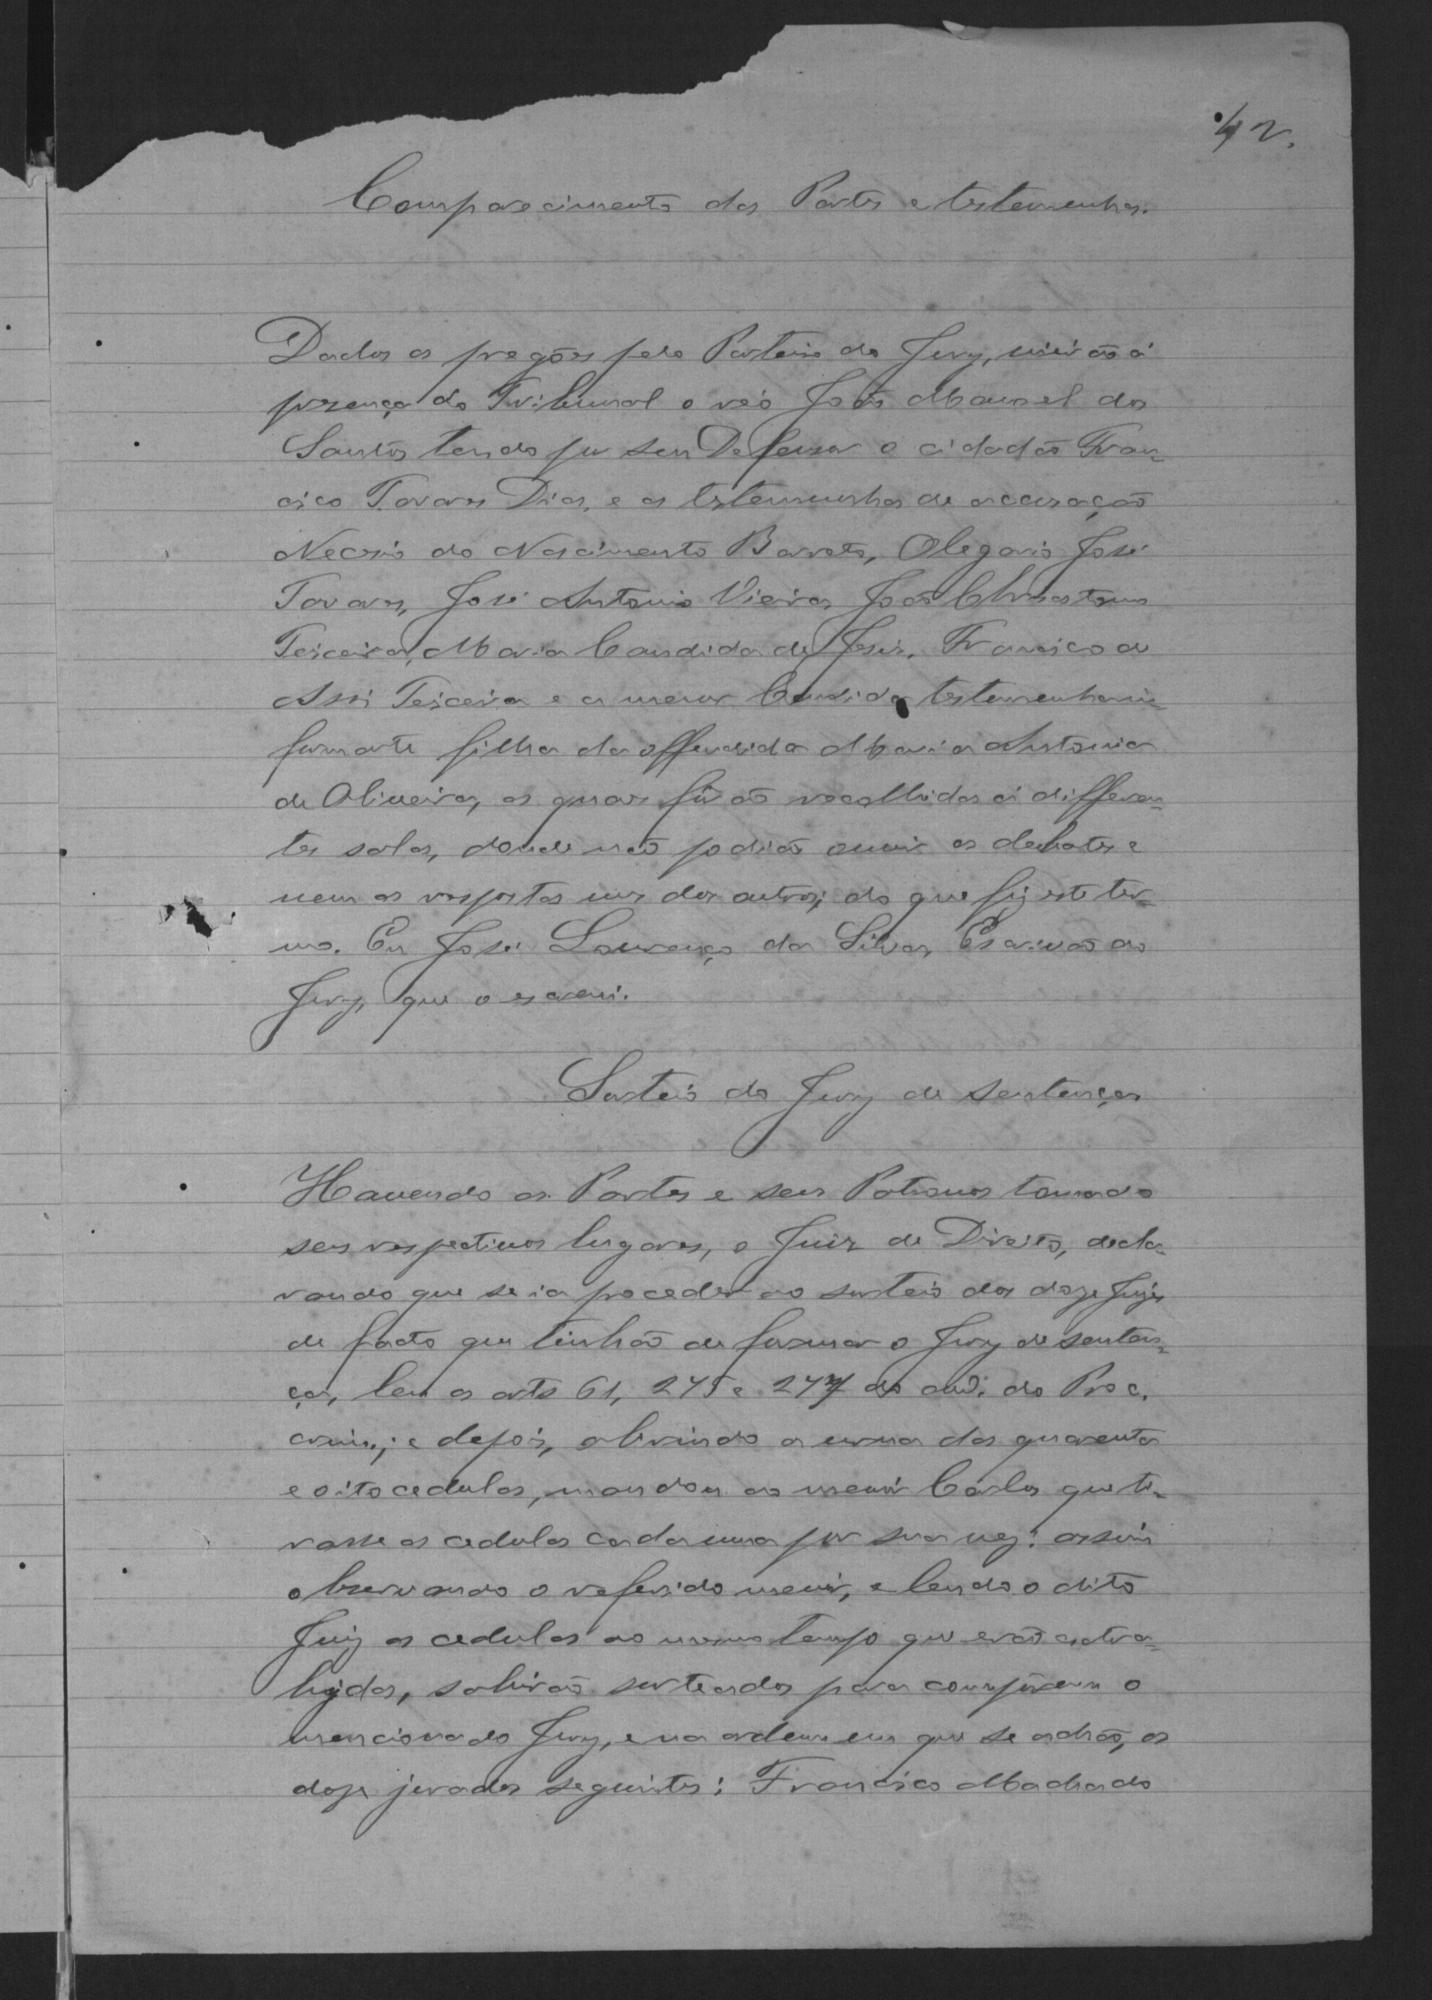 42.
Comparecimento das Partes e testemunhas.
Dados os pregões pelo Porteiro do Jury, vierão á
presença do Tribunal o reó João Manoel dos
Santos tendo por seu Defensor o cidadão Fran-
cisco Tavares Dias, e as testemunhas de accusação
Necesio do Nascimento Barreto, Olegario José
Tavares, José Antonio Vieira, João Chrisostomo
Teixeira, Maria Candida de Jesus, Francisco de
Assis Teixeira e a menor Candida testemunha in-
formante filha da offendida Maria Antonia
de Oliveira, as quaes fôrão recolhidas á differen-
tes salas, donde não podião ouvir os debates e
nem as respostas uns dos outros; do que fiz este ter-
mo. Eu José Lourenço da Silva, Escrivão do
Jury, que o escrevi.
Sorteio do Jury de sentença
Havendo as Partes e seus Patronos tomado
seus respectivos lugares, o Juiz de Direito, decla-
rando que se ia proceder ao sorteio dos doze Juizes
de facto que tinhão de formar o Jury de senten-
ça, leu os arts 61, 275 e 277 do cod. do Proc.
crim.; e depois, abrindo a urna das quarenta
e oito cedulas, mandou ao menor Carlos que ti-
rasse as cedulas cada uma por sua vez: assim
observando o referido menor, e lendo o dito
Juiz as cedulas ao mesmo tempo que erão extra-
hidas, sahirão sorteados para comporem o
mencionado Jury, e na ordem em que se achão, os
doze jurados seguintes: Francisco Machado